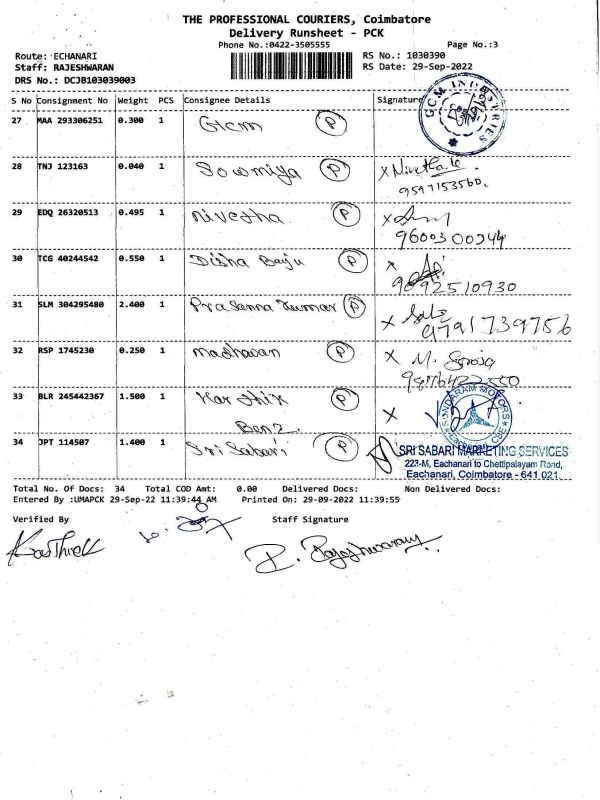 THE PROFESSIONAL COURIERS, Coimbatore
Delivery Runsheet - PCK
Phone No.:0422-3505555 Page No.:3
Route: ECHANARI RS No.: 1030390
Staff: RAJESHWARAN RS Date: 29-Sep-2022
DRS No.: DCJB103039003
S No Consignment No Weight PCS Consignee Details Signature
GCM INDUSTRIES
27 MAA 293306251 0.300 1 GCM P
28 TNJ 123163 0.040 1 Sowmiya P X Nivetha
9597153560.
29 EDQ 26320513 0.495 1 Nivetha P X
9600300244
30 TCG 40244542 0.550 1 Disha Baiju P X
9892510930
31 SLM 304295480 2.400 1 Prasanna Kumar P X
9791739756
32 RSP 1745230 0.250 1 madhavan P X M. Saroja
33 BLR 245442367 1.500 1 Karthik P X
Benz
SUNDARAM MOTORS
34 JPT 114507 1.400 1 Sri Sabari P
SRI SABARI MARKETING SERVICES
223-M, Eachanari to Chettipalayam Road,
Eachanari, Coimbatore - 641 021.
Total No. Of Docs: 34 Total COD Amt: 0.00 Delivered Docs: Non Delivered Docs:
Entered By :UMAPCK 29-Sep-22 11:39:44 AM Printed On: 29-09-2022 11:39:55
Verified By Staff Signature
Karthick
R. Rajeshwaran